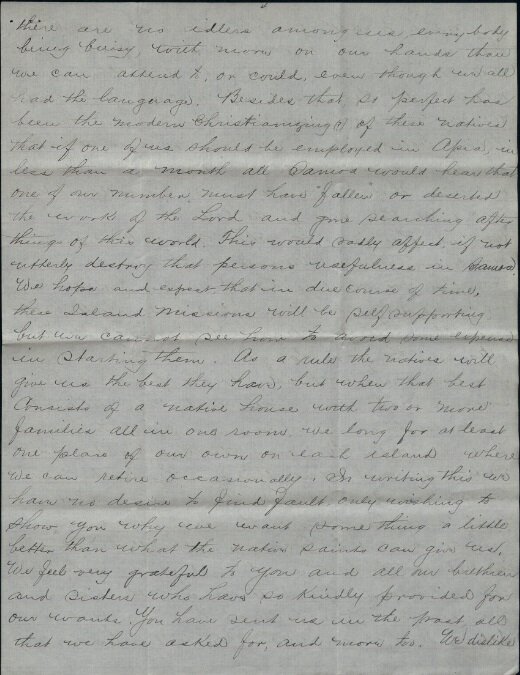 there are no idlers amongst us, everybody
being busy, with more on our hands than
we can attend to, or could, even though we all
had the language. Besides that so perfect has
been the modern Christianizing(?) of these natives
that if one of us should be employed in Apia, in
less than a month all Samoa would hear that
one of our number must have "fallen" or deserted
the work of the Lord and gone searching after
things of this world. This would sadly affect, if not
utterly destroy that persons usefulness in Samoa.
We hope and expect that in due course of time,
these Island missions will be self supporting
but we cannot see how to avoid some expense
in starting them. As a rule the natives will
give us the best they have, but when that best
consists of a native house with two or more
families all in one room, we long for at least
one place of our own on each island where
we can retire occasionally. In writing this we
have no desire to find fault, only wishing to
show you why we want something a little
better than what the native saints can give us.
We feel very grateful to you and all our brethren
and sisters who have so kindly provided for
our wants. You have sent us in the past, all
that we have asked for, and more too. We dislike